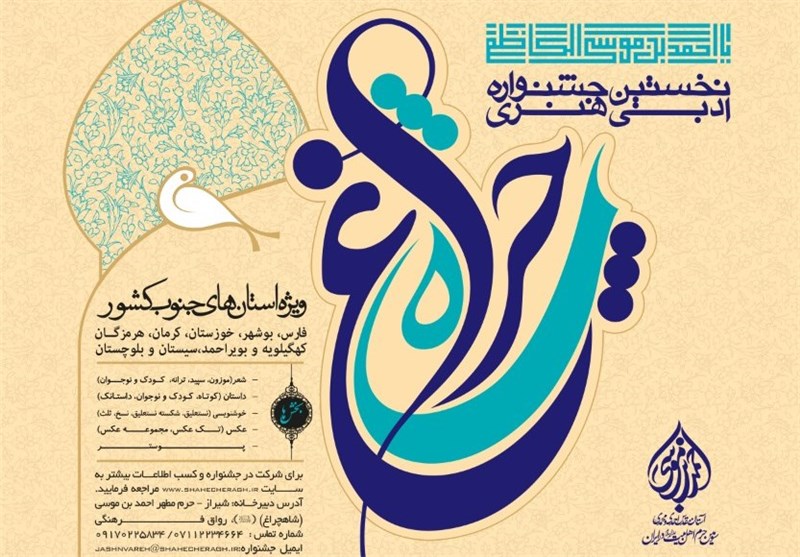 یا احمد بن موسی الکاظم
نخستین جشنواره
ادبی هنری
شاهچراغ
ویژه استان های جنوب کشور
فارس، بوشهر، خوزستان، کرمان، هرمزگان
کهگیلویه و بویراحمد،سیستان و بلوچستان
بخش‌ها
– شعر(موزون، سپید، ترانه، کودک و نوجوان)
– داستان (کوتاه، کودک و نوجوان، داستانک)
– خوشنویسی (نستعلیق، شکسته نستعلیق، نسخ، ثلث)
– عکس (تک عکس، مجموعه عکس)
– پوستر
برای شرکت در جشنواره و کسب اطلاعات بیشتر به
سایت WWW.SHAHECHERAGH.IR مراجعه فرمایید.
آدرس دبیرخانه: شیراز - حرم مطهر احمد بن موسی
(شاهچراغ) (ع)، رواق فرهنگی
شماره تماس : ۰۷۱۱۲۲۳۴۶۶۴ / ۰۹۱۷۰۲۲۵۸۳۴
ایمیل جشنواره:JASHNVAREH@SHAHECHERAGH.IR
احمد بن موسی
سومین حرم اهل بیت در ایران